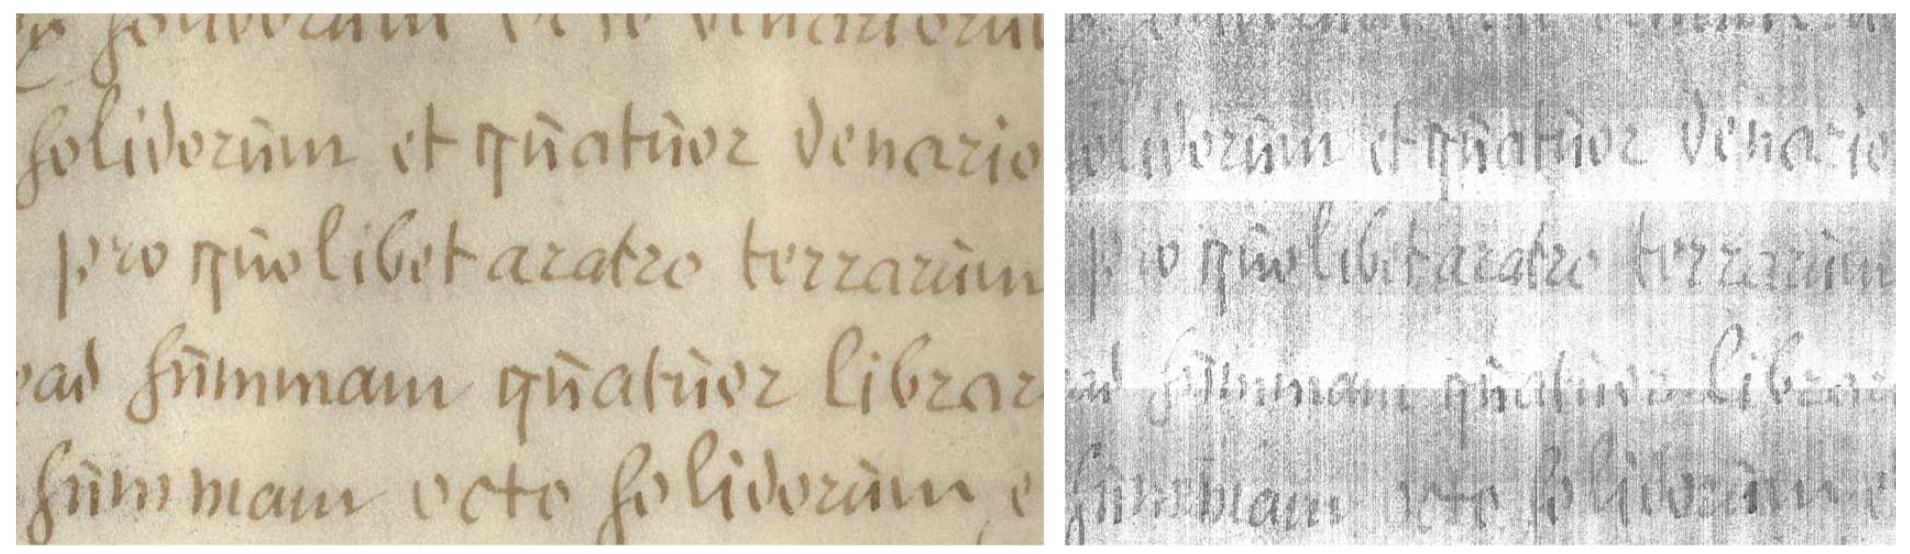 solidorum et quatuor denario
pro quolibet aratro terrarum
ad summam quatuor librar
summam octo solidorum e
solidorum et quatuor denario
pro quolibet aratro terrarum
ad summam quatuor librar
summam octo solidorum